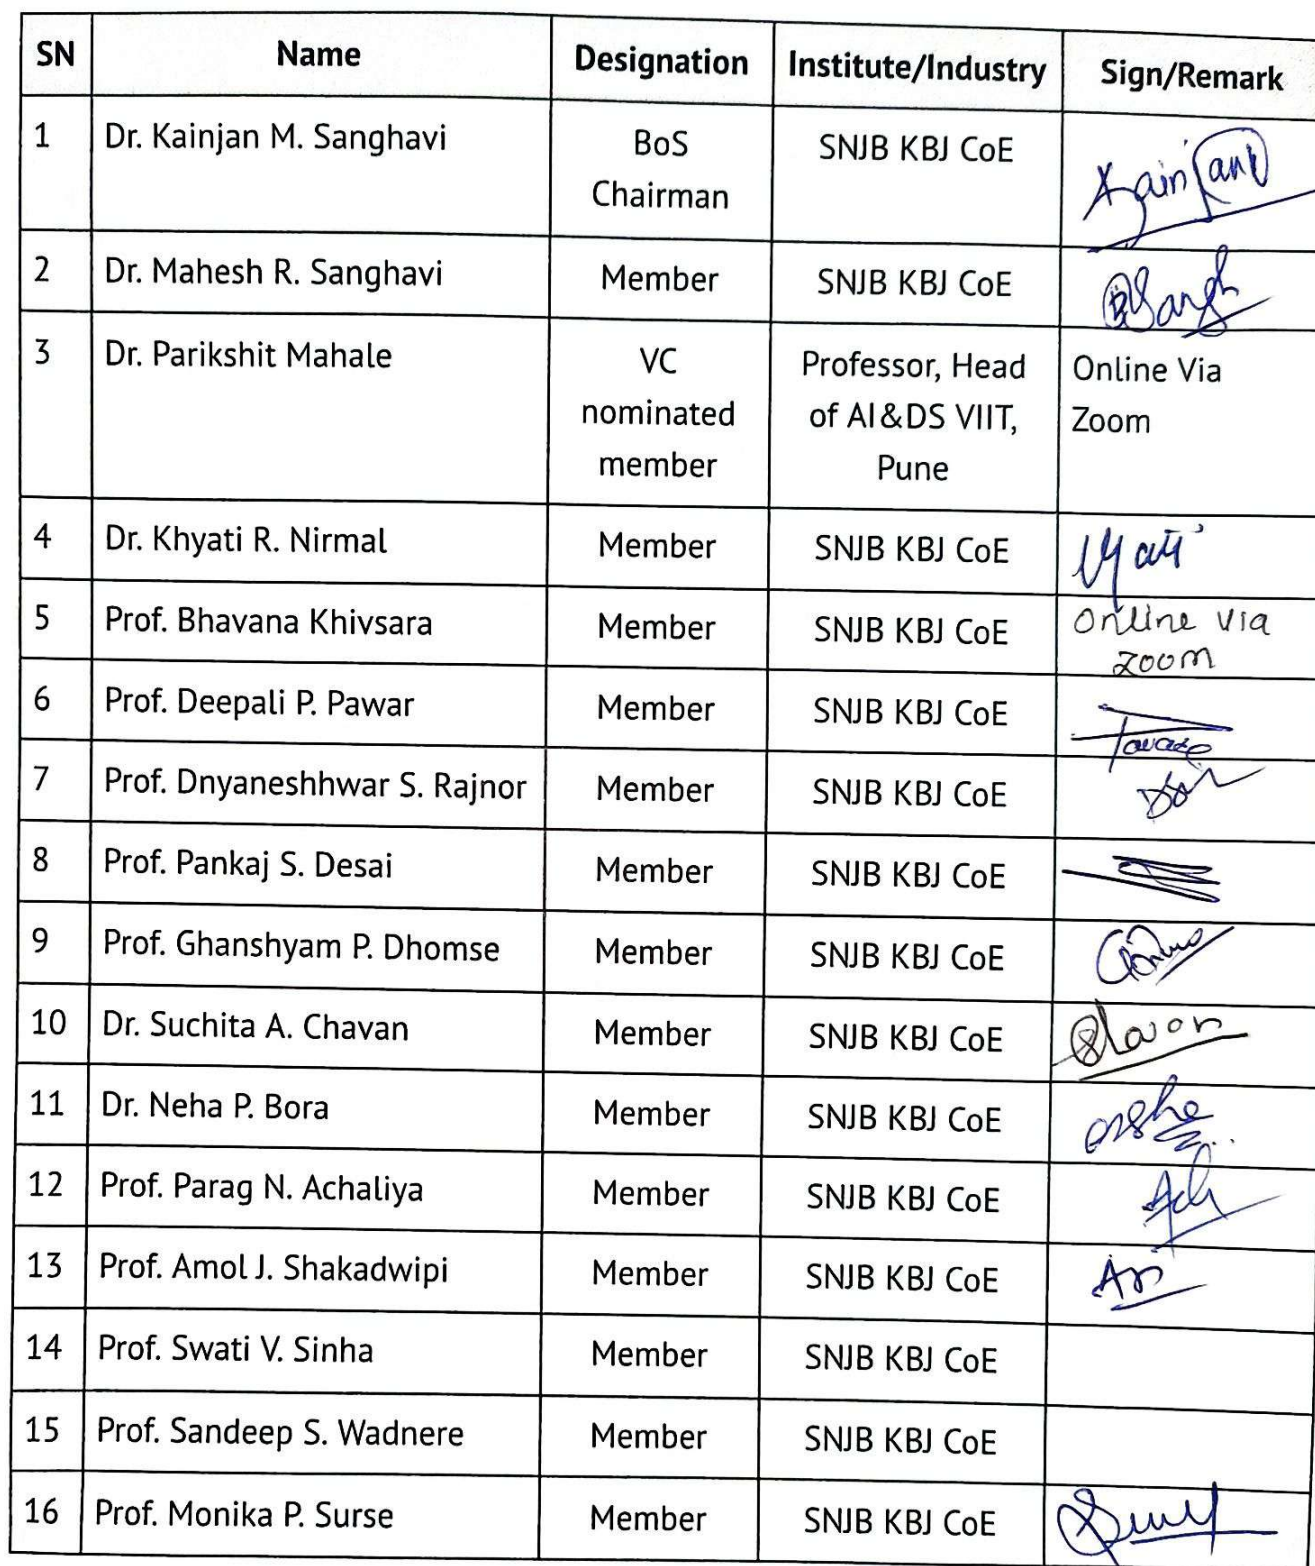 SN Name Designation Institute/Industry Sign/Remark
1 Dr. Kainjan M. Sanghavi BoS SNJB KBJ CoE
Chairman
2 Dr. Mahesh R. Sanghavi Member SNJB KBJ CoE
3 Dr. Parikshit Mahale VC Professor, Head Online Via
nominated of AI&DS VIIT, Zoom
member Pune
4 Dr. Khyati R. Nirmal Member SNJB KBJ CoE
5 Prof. Bhavana Khivsara Member SNJB KBJ CoE Online via
zoom
6 Prof. Deepali P. Pawar Member SNJB KBJ CoE
7 Prof. Dnyaneshhwar S. Rajnor Member SNJB KBJ CoE
8 Prof. Pankaj S. Desai Member SNJB KBJ CoE
9 Prof. Ghanshyam P. Dhomse Member SNJB KBJ CoE
10 Dr. Suchita A. Chavan Member SNJB KBJ CoE
11 Dr. Neha P. Bora Member SNJB KBJ CoE
12 Prof. Parag N. Achaliya Member SNJB KBJ CoE
13 Prof. Amol J. Shakadwipi Member SNJB KBJ CoE
14 Prof. Swati V. Sinha Member SNJB KBJ CoE
15 Prof. Sandeep S. Wadnere Member SNJB KBJ CoE
16 Prof. Monika P. Surse Member SNJB KBJ CoE